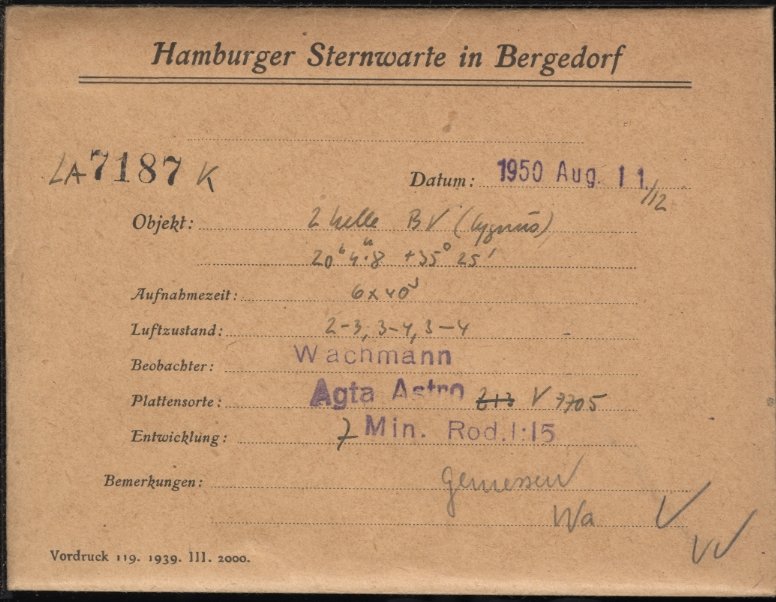 Hamburger Sternwarte in Bergedorf
LA 7187 K
Datum: 1950 Aug. 11/12
Objekt: 2 helle BV (Cygnus)
20ʰ 4ᵐ.8 +35° 25'
Aufnahmezeit: 6x40ˢ
Luftzustand: 2-3, 3-4, 3-4
Beobachter: Wachmann
Plattensorte: Agfa Astro V 7705
Entwicklung: 7 Min. Rod. 1:15
Bemerkungen: gemessen
Wa V
VV
Vordruck 119. 1939. III. 2000.